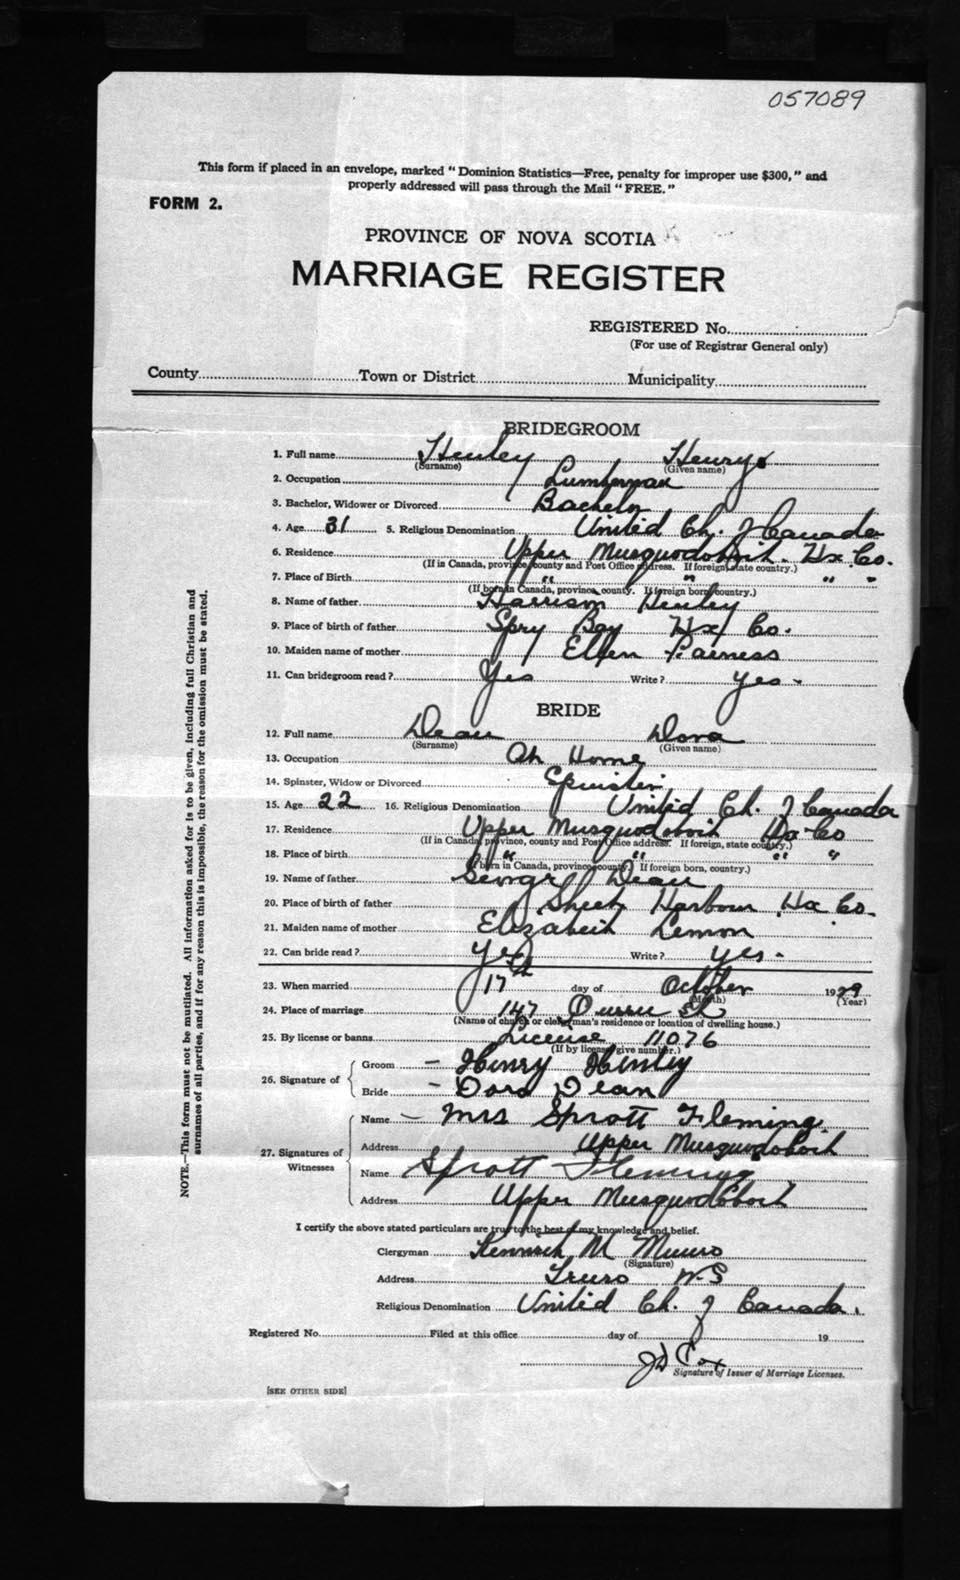 057089
This form if placed in an envelope, marked "Dominion Statistics—Free, penalty for improper use $300," and
properly addressed will pass through the Mail "FREE."
FORM 2.
PROVINCE OF NOVA SCOTIA
MARRIAGE REGISTER
REGISTERED No.
(For use of Registrar General only)
County Town or District Municipality
BRIDEGROOM
1. Full name Henley Henry
(Surname) (Given name)
2. Occupation Lumberman
3. Bachelor, Widower or Divorced Bachelor
4. Age 31 5. Religious Denomination United Ch. of Canada
6. Residence Upper Musquodoboit. Hx Co.
(If in Canada, province, county and Post Office address. If foreign, state country.)
7. Place of Birth " " " "
(If born in Canada, province, county. If foreign born, country.)
8. Name of father Harrison Henley
9. Place of birth of father Spry Bay Hx Co.
10. Maiden name of mother Ellen
11. Can bridegroom read? Yes Write? yes-
BRIDE
12. Full name Dean Dora
(Surname) (Given name)
13. Occupation At Home
14. Spinster, Widow or Divorced Spinster
15. Age 22 16. Religious Denomination United Ch. of Canada
17. Residence Upper Musquodoboit Hx Co
(If in Canada, province, county and Post Office address. If foreign, state country.)
18. Place of birth " " " "
(If born in Canada, province, county. If foreign born, country.)
19. Name of father George Dean
20. Place of birth of father Sheet Harbour Hx Co.
21. Maiden name of mother Elizabeth Lemon
22. Can bride read? yes Write? yes-
23. When married 17th day of October 1929
(Month) (Year)
24. Place of marriage 147 Queen St
(Name of church or clergyman's residence or location of dwelling house.)
25. By license or banns License 11076
(If by license, give number.)
26. Signature of Groom - Henry Henley
Bride - Dora Dean
27. Signatures of Witnesses Name - Mrs Sprott Fleming
Address Upper Musquodoboit
Name Sprott Fleming
Address Upper Musquodoboit
I certify the above stated particulars are true to the best of my knowledge and belief.
Clergyman Kenneth M Munro
(Signature)
Address Truro N.S
Religious Denomination United Ch. of Canada.
Registered No. Filed at this office day of 19
J D Cox
Signature of Issuer of Marriage Licenses.
[SEE OTHER SIDE]
NOTE.—This form must not be mutilated. All information asked for is to be given, including full Christian and
surnames of all parties, and if for any reason this is impossible, the reason for the omission must be stated.